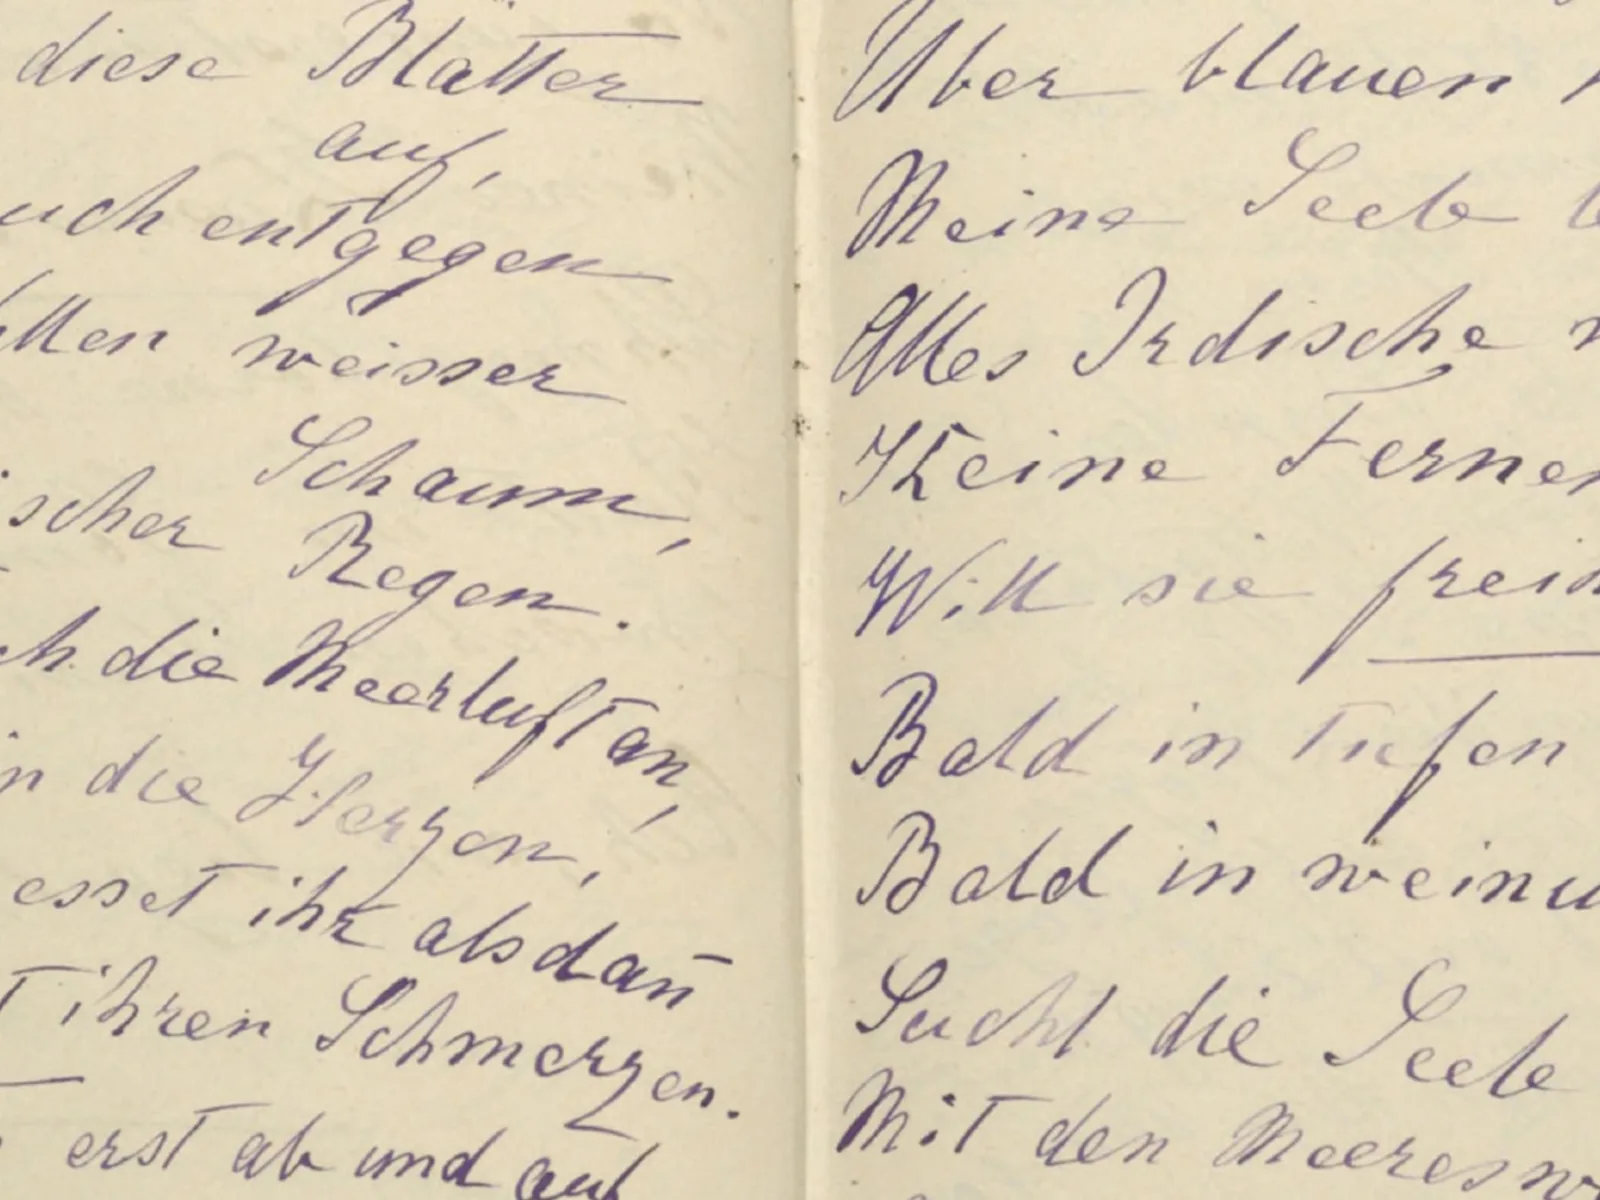 diese Blätter
auf,
euch entgegen
weisser
Schaum,
ischer Regen.
die Meerluft an,
in die Herzen,
esset ihr alsdañ
ihren Schmerzen.
erst ab und auf
Über blauen
Meine Seele
Alles Irdische
Keine Fernen
Will sie frein
Bald in tiefen
Bald in weinu
Sucht die Seele
Mit den Meeresw